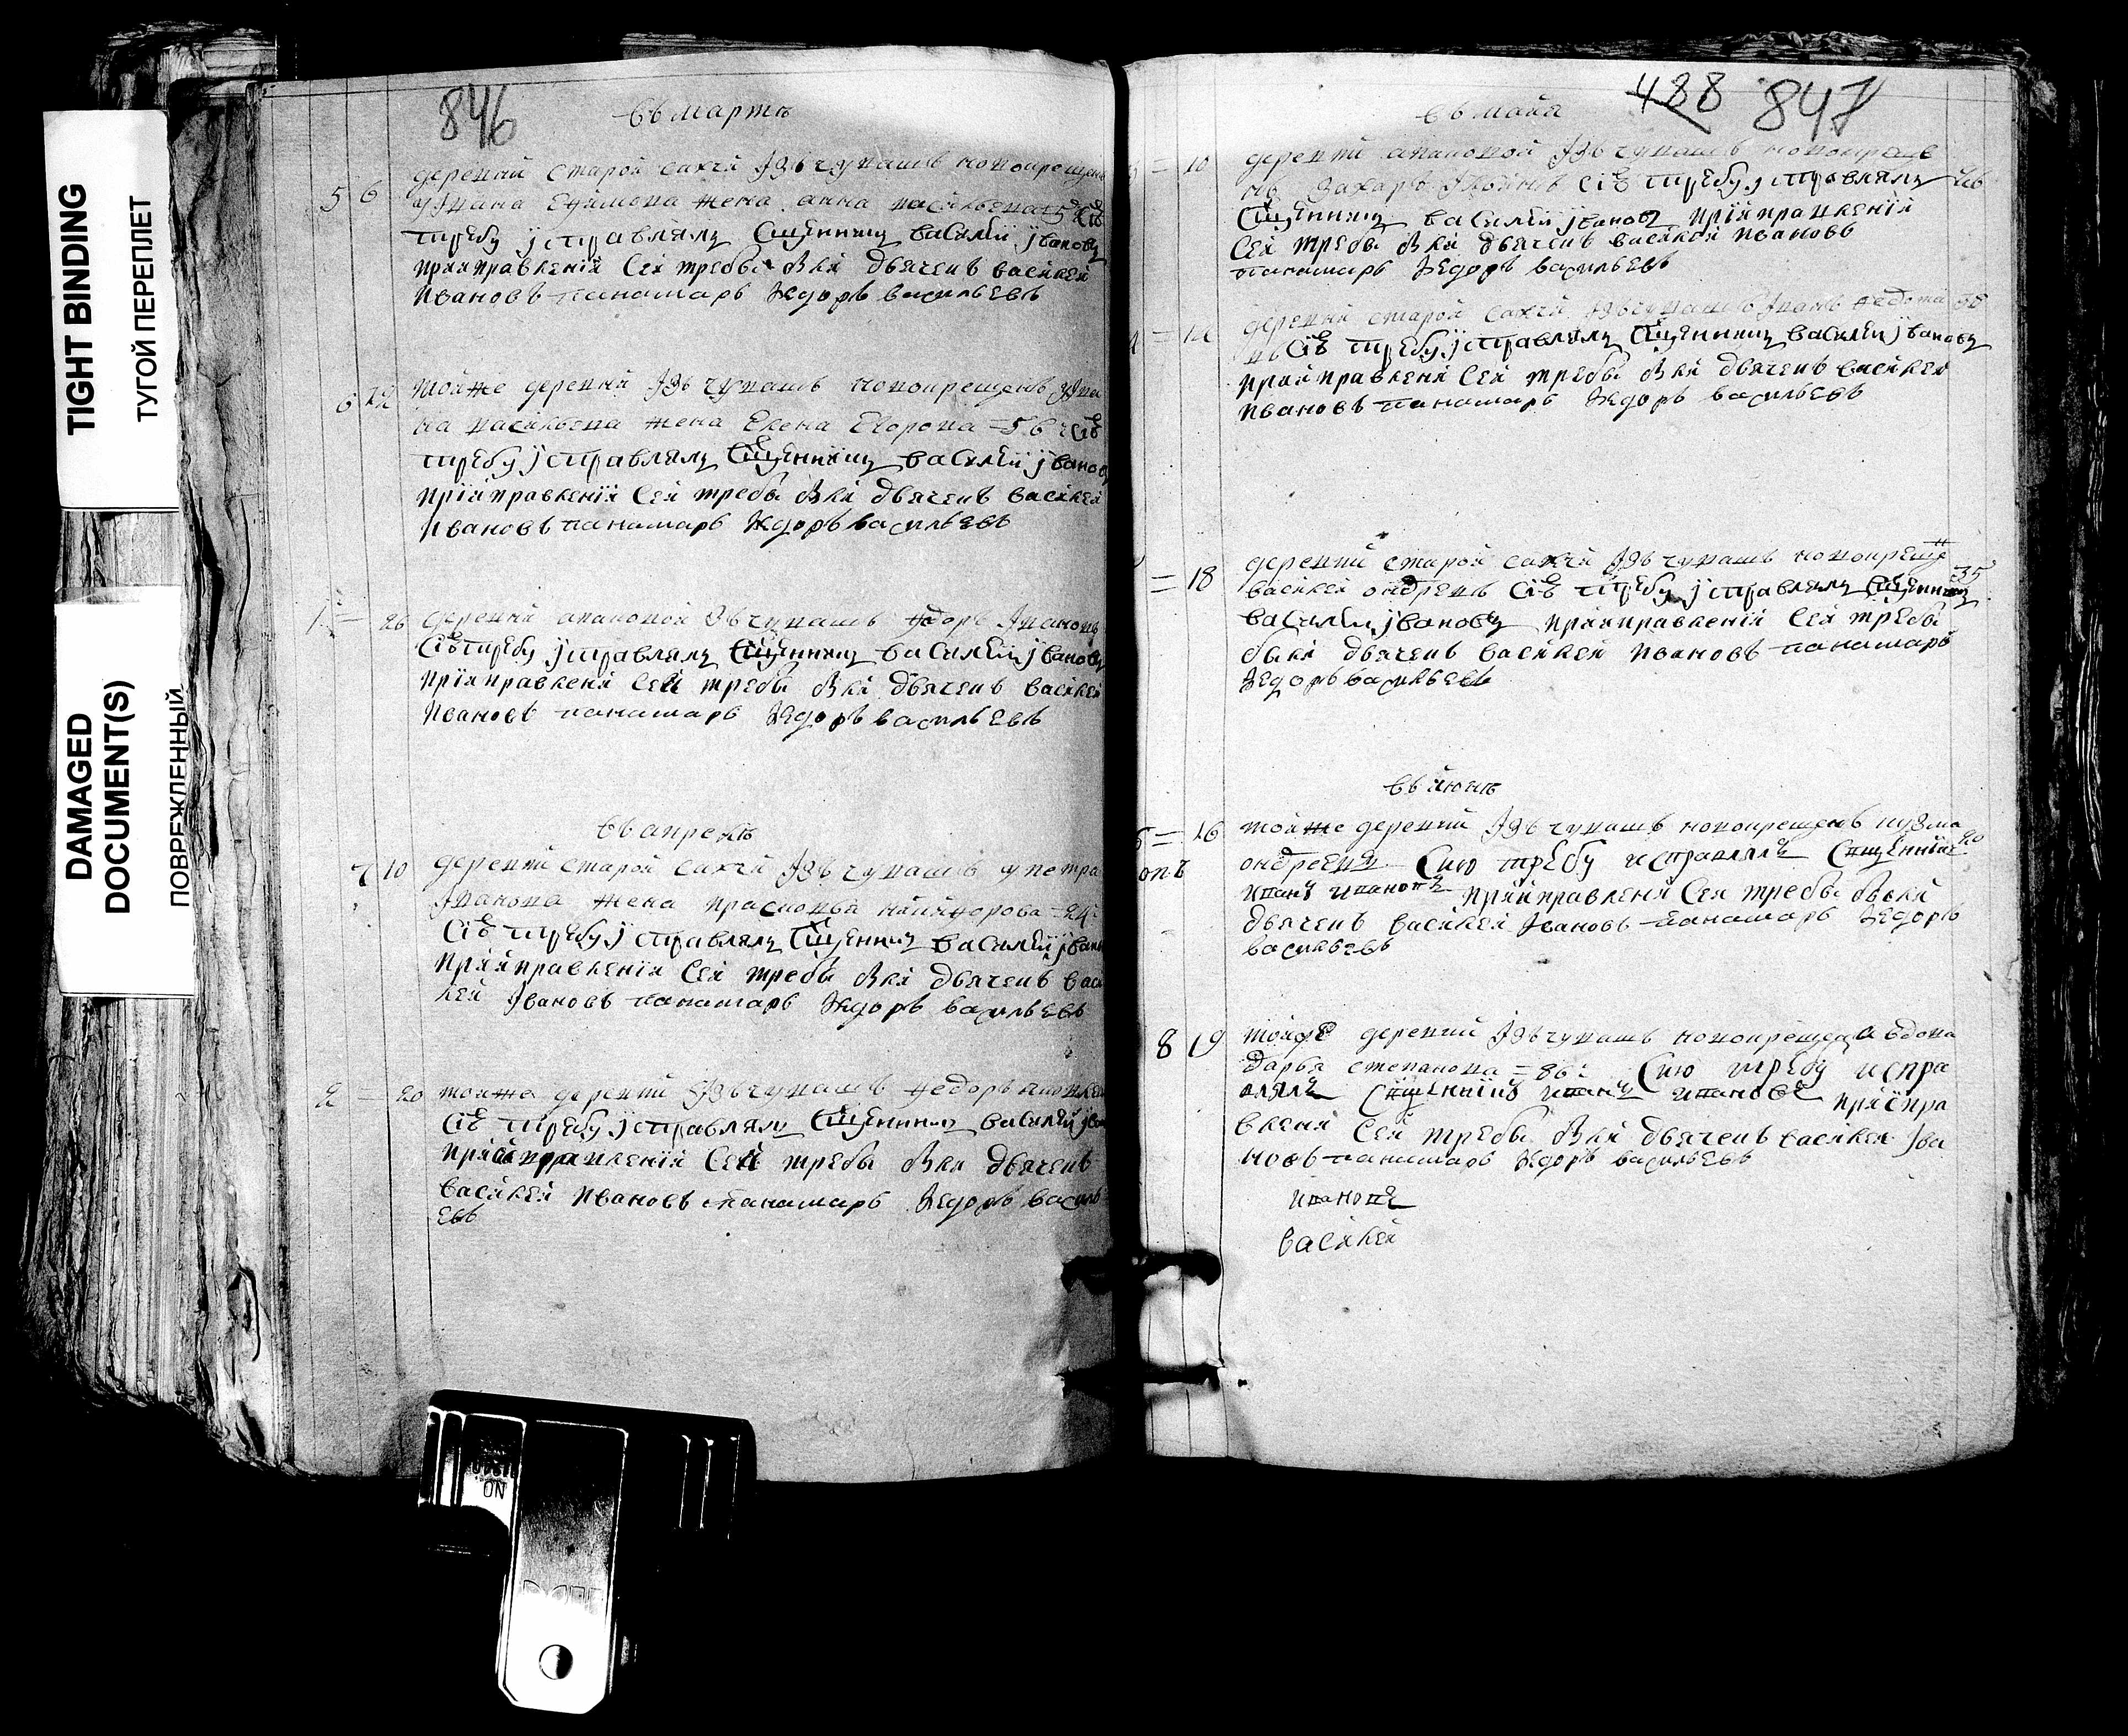 TIGHT BINDING
ТУГОЙ ПЕРЕПЛЕТ
DAMAGED
DOCUMENT(S)
ПОВРЕЖДЕННЫЙ
846
въ мартѣ
5 6 деревни старой сахчи изъ чувашъ новокрещенъ
у ивана жена анна васильева
требу исправлялъ Сщенникъ василей ивановъ
При исправленіи сея требы были дьячекъ василей
ивановъ панамарь федоръ васильевъ
6 22 тойже деревни изъ чувашъ новокрещенъ у ива
на васильева жена Елена Егорова 56 сію
требу исправлялъ Сщенникъ василей иванов
При исправленіи сея требы были дьячекъ василей
ивановъ панамарь федоръ васильевъ
1 26 деревни изъ чувашъ федоръ ивановъ
Сію требу исправлялъ Сщенникъ василей ивановъ
При исправлени сей требы были дьячекъ василей
ивановъ панамарь федоръ васильевъ
въ апрелѣ
7 10 деревни старой сахчи изъ чувашъ у петра
иванова жена прасковья никифорова 24
Сію требу исправлялъ Сщенникъ василей иван
При исправленіи сея требы были дьячекъ васи
лей ивановъ панамарь федоръ васильевъ
2 20 тойже деревни изъ чувашъ федоръ
Сію требу исправлялъ Сщенникъ василей ива
При исправленіи сей требы были дьячекъ
василей ивановъ панамарь федоръ василь
евъ
488 847
въ майя
10 деревни изъ чувашъ новокреще
нъ захаръ сію требу исправлялъ 26
Сщенникъ василей ивановъ при исправленіи
сея требы были дьячекъ василей ивановъ
панамарь федоръ васильевъ
деревни старой сахчи изъ чувашъ иванъ федота
въ Сію требу исправлялъ Сщенникъ василей ивановъ
При исправлени сея требы были дьячекъ василей
ивановъ панамарь федоръ васильевъ
18 деревни старой сахчи изъ чувашъ новокрещен
василей ондревъ сію требу исправлялъ Сщенникъ 35
василей ивановъ При исправленіи сея требы
были дьячекъ василей ивановъ панамарь
федоръ васильевъ
въ июнѣ
16 тойже деревни изъ чувашъ новокрещенъ кузма
ондреевъ Сию требу исправлялъ Сщенникъ 20
иванъ ивановъ При исправлени сея требы были
дьячекъ василей ивановъ панамарь федоръ
васильевъ
8 19 тойже деревни изъ чувашъ новокрещена вдова
дарья степанова 86 Сию требу испра
влялъ Сщенникъ иванъ ивановъ При испра
влени сей требы были дьячекъ василей ива
новъ панамарь федоръ васильевъ
ивановъ
василей